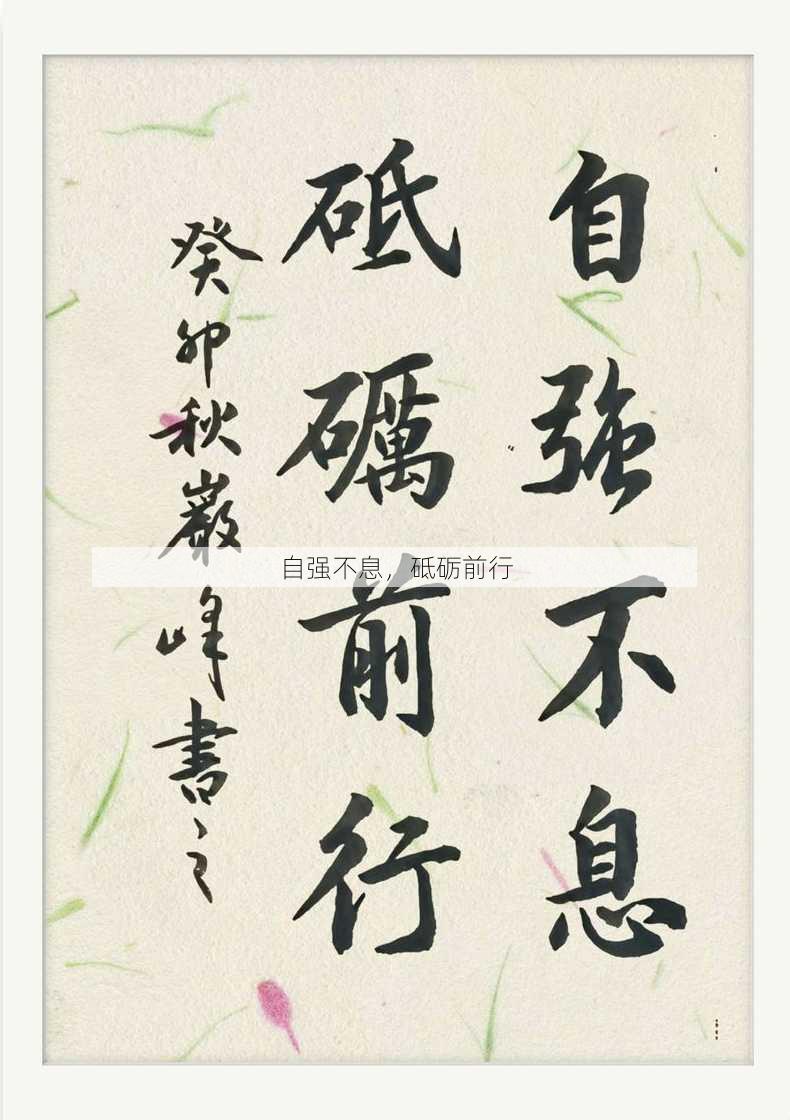 自強不息
砥礪前行
癸卯秋巖峰書之
自强不息，砥砺前行